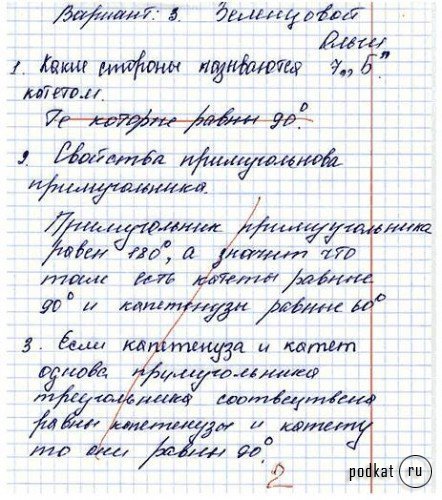 Вариант: 3. Зеленцовой
Ольги
1. Какие стороны называются 7 „Б"
катетом.
Те которые равны 90°.
2. Свойства примугольнова
примугольника.
Примугольник примуугольника
равен 180°, а значит что
там есть катеты равные
90° и капетенузы равные 60°
3. Если капетенуза и катет
однова примугольника
треугольника соотвецтвена
равны капетенузы и катету
то они равны 90°.
2
podkat ru